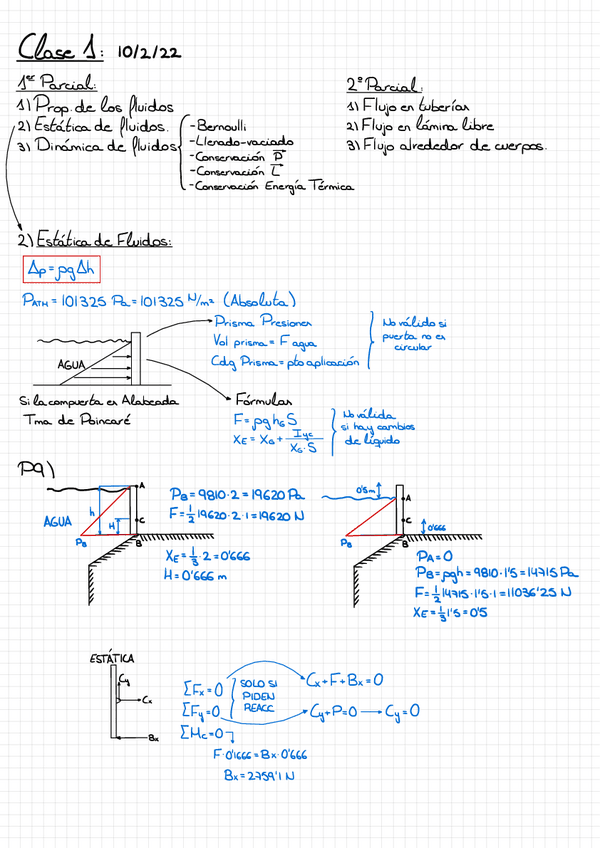 Clase 1: 10/2/22
1er Parcial:
1) Prop. de los fluidos
2) Estática de fluidos.
3) Dinámica de fluidos
-Bernoulli
-Llenado-vaciado
-Conservación P
-Conservación L
-Conservación Energía Térmica
2º Parcial:
1) Flujo en tuberías
2) Flujo en lámina libre
3) Flujo alrededor de cuerpos.
2) Estática de Fluidos:
Δp = ρgΔh
PATM = 101325 Pa = 101325 N/m² (Absoluta)
AGUA
Prisma Presiones
Vol prisma = F agua
Cdg Prisma = pto aplicación
No válido si
puerta no es
circular
Si la compuerta es Alabeada
Tma de Poincaré
Fórmulas
F = ρg hG S
XE = XG + Iyc / XG · S
No válida
si hay cambios
de líquido
P9)
AGUA
h
H
A
C
B
PB
PB = 9810·2 = 19620 Pa
F = 1/2 19620·2·1 = 19620 N
XE = 1/3·2 = 0'666
H = 0'666 m
0'5m
A
C
0'666
PB
B
PA = 0
PB = ρgh = 9810·1'5 = 14715 Pa
F = 1/2 14715·1'5·1 = 11036'25 N
XE = 1/3 1'5 = 0'5
ESTÁTICA
Cy
Cx
Bx
ΣFx = 0
ΣFy = 0
ΣMc = 0
SOLO SI
PIDEN
REACC
Cx + F + Bx = 0
Cy + P = 0 → Cy = 0
F·0'1666 = Bx·0'666
Bx = 2759'1 N